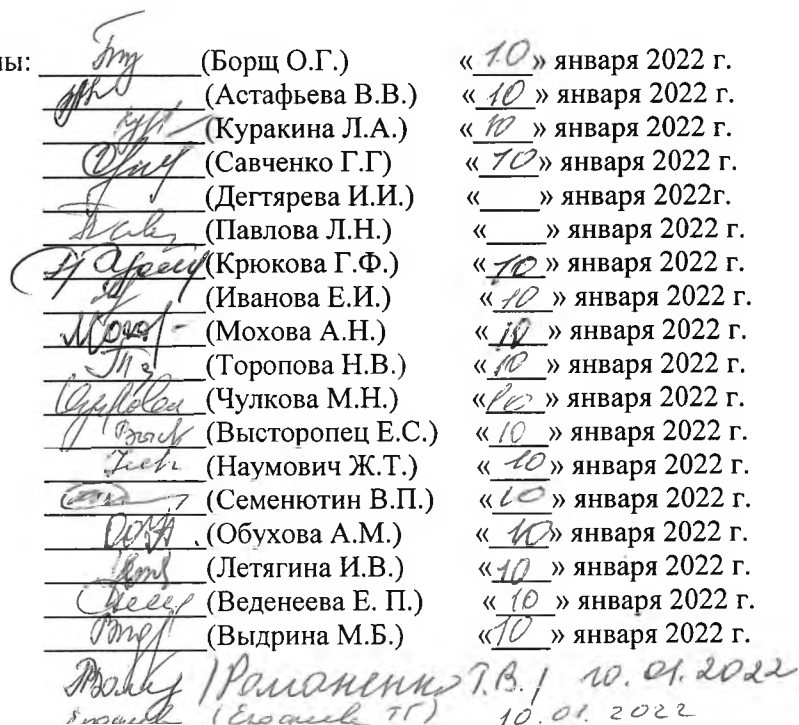 ны: (Борщ О.Г.) « 10 » января 2022 г.
(Астафьева В.В.) « 10 » января 2022 г.
(Куракина Л.А.) « 10 » января 2022 г.
(Савченко Г.Г) « 10 » января 2022 г.
(Дегтярева И.И.) «____» января 2022г.
(Павлова Л.Н.) «____» января 2022 г.
(Крюкова Г.Ф.) « 10 » января 2022 г.
(Иванова Е.И.) « 10 » января 2022 г.
(Мохова А.Н.) « 10 » января 2022 г.
(Торопова Н.В.) « 10 » января 2022 г.
(Чулкова М.Н.) « 10 » января 2022 г.
(Высторопец Е.С.) « 10 » января 2022 г.
(Наумович Ж.Т.) « 10 » января 2022 г.
(Семенютин В.П.) « 10 » января 2022 г.
(Обухова А.М.) « 10 » января 2022 г.
(Летягина И.В.) « 10 » января 2022 г.
(Веденеева Е. П.) « 10 » января 2022 г.
(Выдрина М.Б.) « 10 » января 2022 г.
/Романенко Т.В./ 10.01.2022
10.01.2022